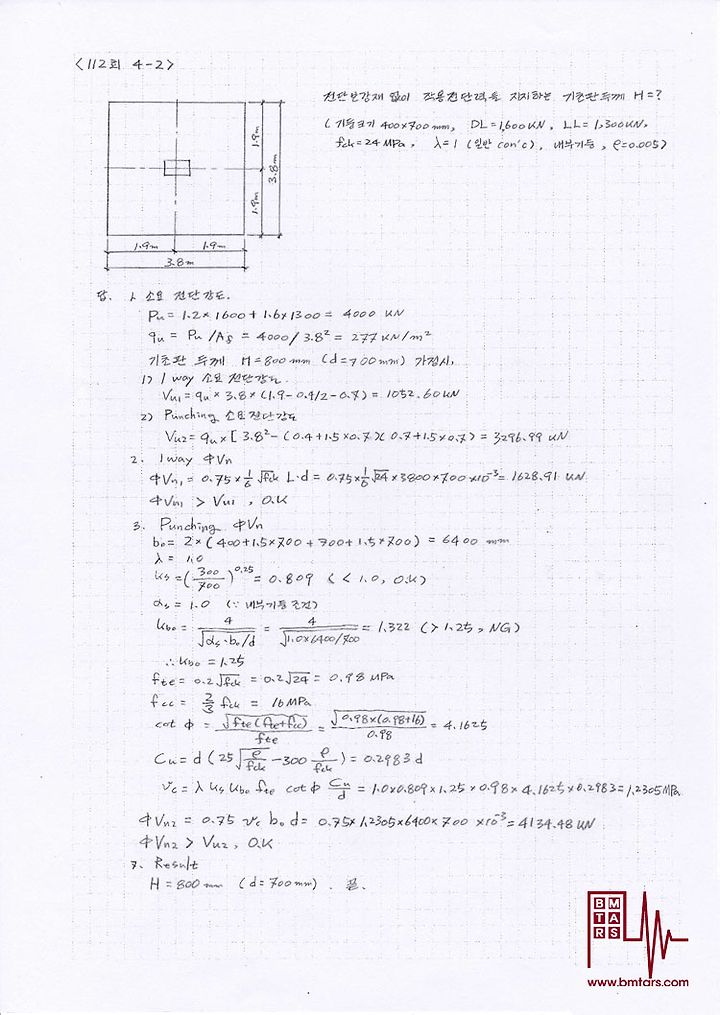 <112회 4-2>
전단보강재 없이 작용전단력을 지지하는 기초판두께 H=?
(기둥크기 400×700mm, DL=1,600KN, LL=1,300KN,
fck=24MPa, λ=1 (일반 con'c), 내부기둥, ρ=0.005)
1.9m
1.9m
3.8m
1.9m 1.9m
3.8m
답. 1. 소요 전단강도.
Pu = 1.2×1600 + 1.6×1300 = 4000 KN
qu = Pu/Af = 4000/3.8² = 277 KN/m²
기초판 두께 H=800mm (d=700mm) 가정시,
1) 1way 소요전단강도.
Vu1 = qu × 3.8×(1.9-0.4/2-0.7) = 1052.60KN
2) Punching 소요전단강도
Vu2 = qu×[3.8²-(0.4+1.5×0.7)(0.7+1.5×0.7) = 3296.99 KN
2. 1way ΦVn
ΦVn1 = 0.75×1/6 √fck L·d = 0.75×1/6 √24×3800×700×10⁻³ = 1628.91 KN
ΦVn1 > Vu1, O.K
3. Punching ΦVn
bo = 2×(400+1.5×700+700+1.5×700) = 6400 mm
λ = 1.0
ks = (300/700)^0.25 = 0.809 (<1.0, O.K)
αs = 1.0 (∵ 내부기둥 조건)
kbo = 4/√(αs·bo/d) = 4/√(1.0×6400/700) = 1.322 (>1.25, NG)
∴ kbo = 1.25
fte = 0.2√fck = 0.2√24 = 0.98 MPa
fcc = 2/3 fck = 16MPa
cot Φ = √(fte(fte+fcc))/fte = √(0.98×(0.98+16))/0.98 = 4.1625
Cu = d(25√(ρ/fck) - 300 ρ/fck) = 0.2983 d
vc = λ ks kbo fte cotΦ Cu/d = 1.0×0.809×1.25×0.98×4.1625×0.2983 = 1.2305MPa
ΦVn2 = 0.75 vc bo d = 0.75×1.2305×6400×700×10⁻³ = 4134.48 KN
ΦVn2 > Vu2, O.K
7. Result
H = 800mm (d=700mm). 끝.
BM
TA
RS
www.bmtars.com